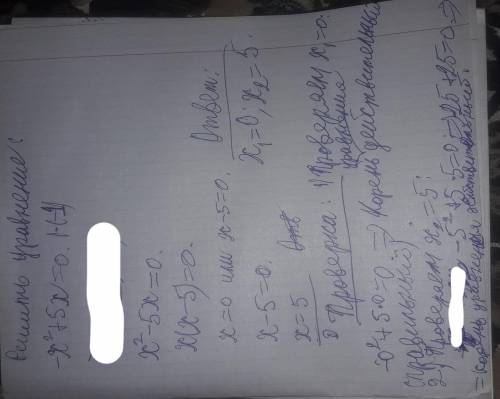 Решить уравнение:
-x²+5x=0. |·(-1)
x²-5x=0.
x(x-5)=0.
x=0 или x-5=0.
x-5=0.
x=5
Ответ:
x₁=0; x₂=5.
Проверка: 1) Проверяем x₁=0.
-0²+5·0=0 ⇒ Корень уравнения действительный
(правильный).
2) Проверяем x₂=5:
-5²+5·5=0 ⇒ -25+25=0 ⇒
⇒ корень уравнения действительный.